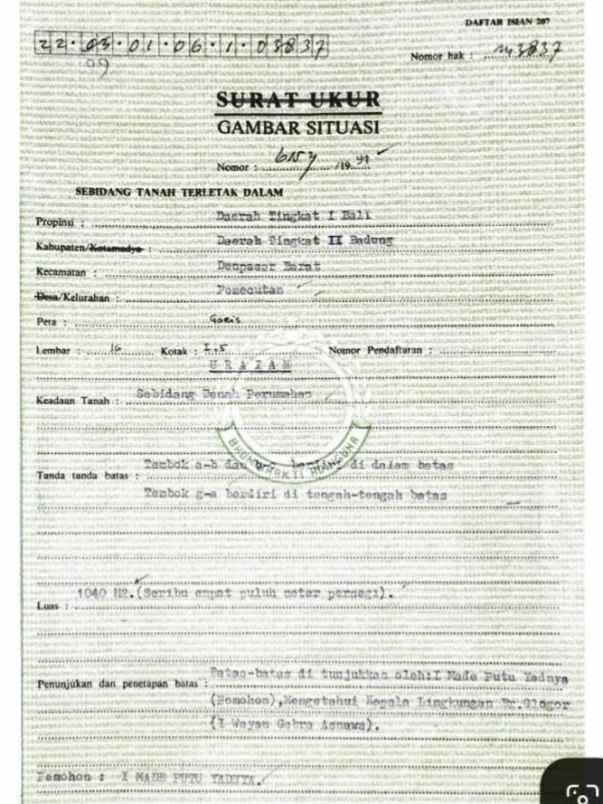 DAFTAR ISIAN 207
22.05.01.06.1.03837
09
Nomor hak : M 3837
SURAT UKUR
GAMBAR SITUASI
Nomor : /19 91
SEBIDANG TANAH TERLETAK DALAM
Propinsi : Daerah Tingkat I Bali
Kabupaten/Kotamadya : Daerah Tingkat II Badung
Kecamatan : Denpasar Barat
Desa/Kelurahan : Pemecutan
Peta : Garis
Lembar : 16 Kotak : I.5 Nomor Pendaftaran :
URAIAN
Keadaan Tanah : Sebidang Tanah Perumahan
Tembok a-b dan berdiri di dalam batas
Tanda tanda batas :
Tembok g-a berdiri di tengah-tengah batas
1040 M2.(Seribu empat puluh meter persegi).
Luas :
Batas-batas di tunjukkan oleh:I Made Putu Yadnya
Penunjukan dan penetapan batas :
(Pemohon),Mengetahui Kepala Lingkungan Br.Glogor
(I Wayan Gebra Asnawa).
Pemohon : I MADE PUTU YADNYA.